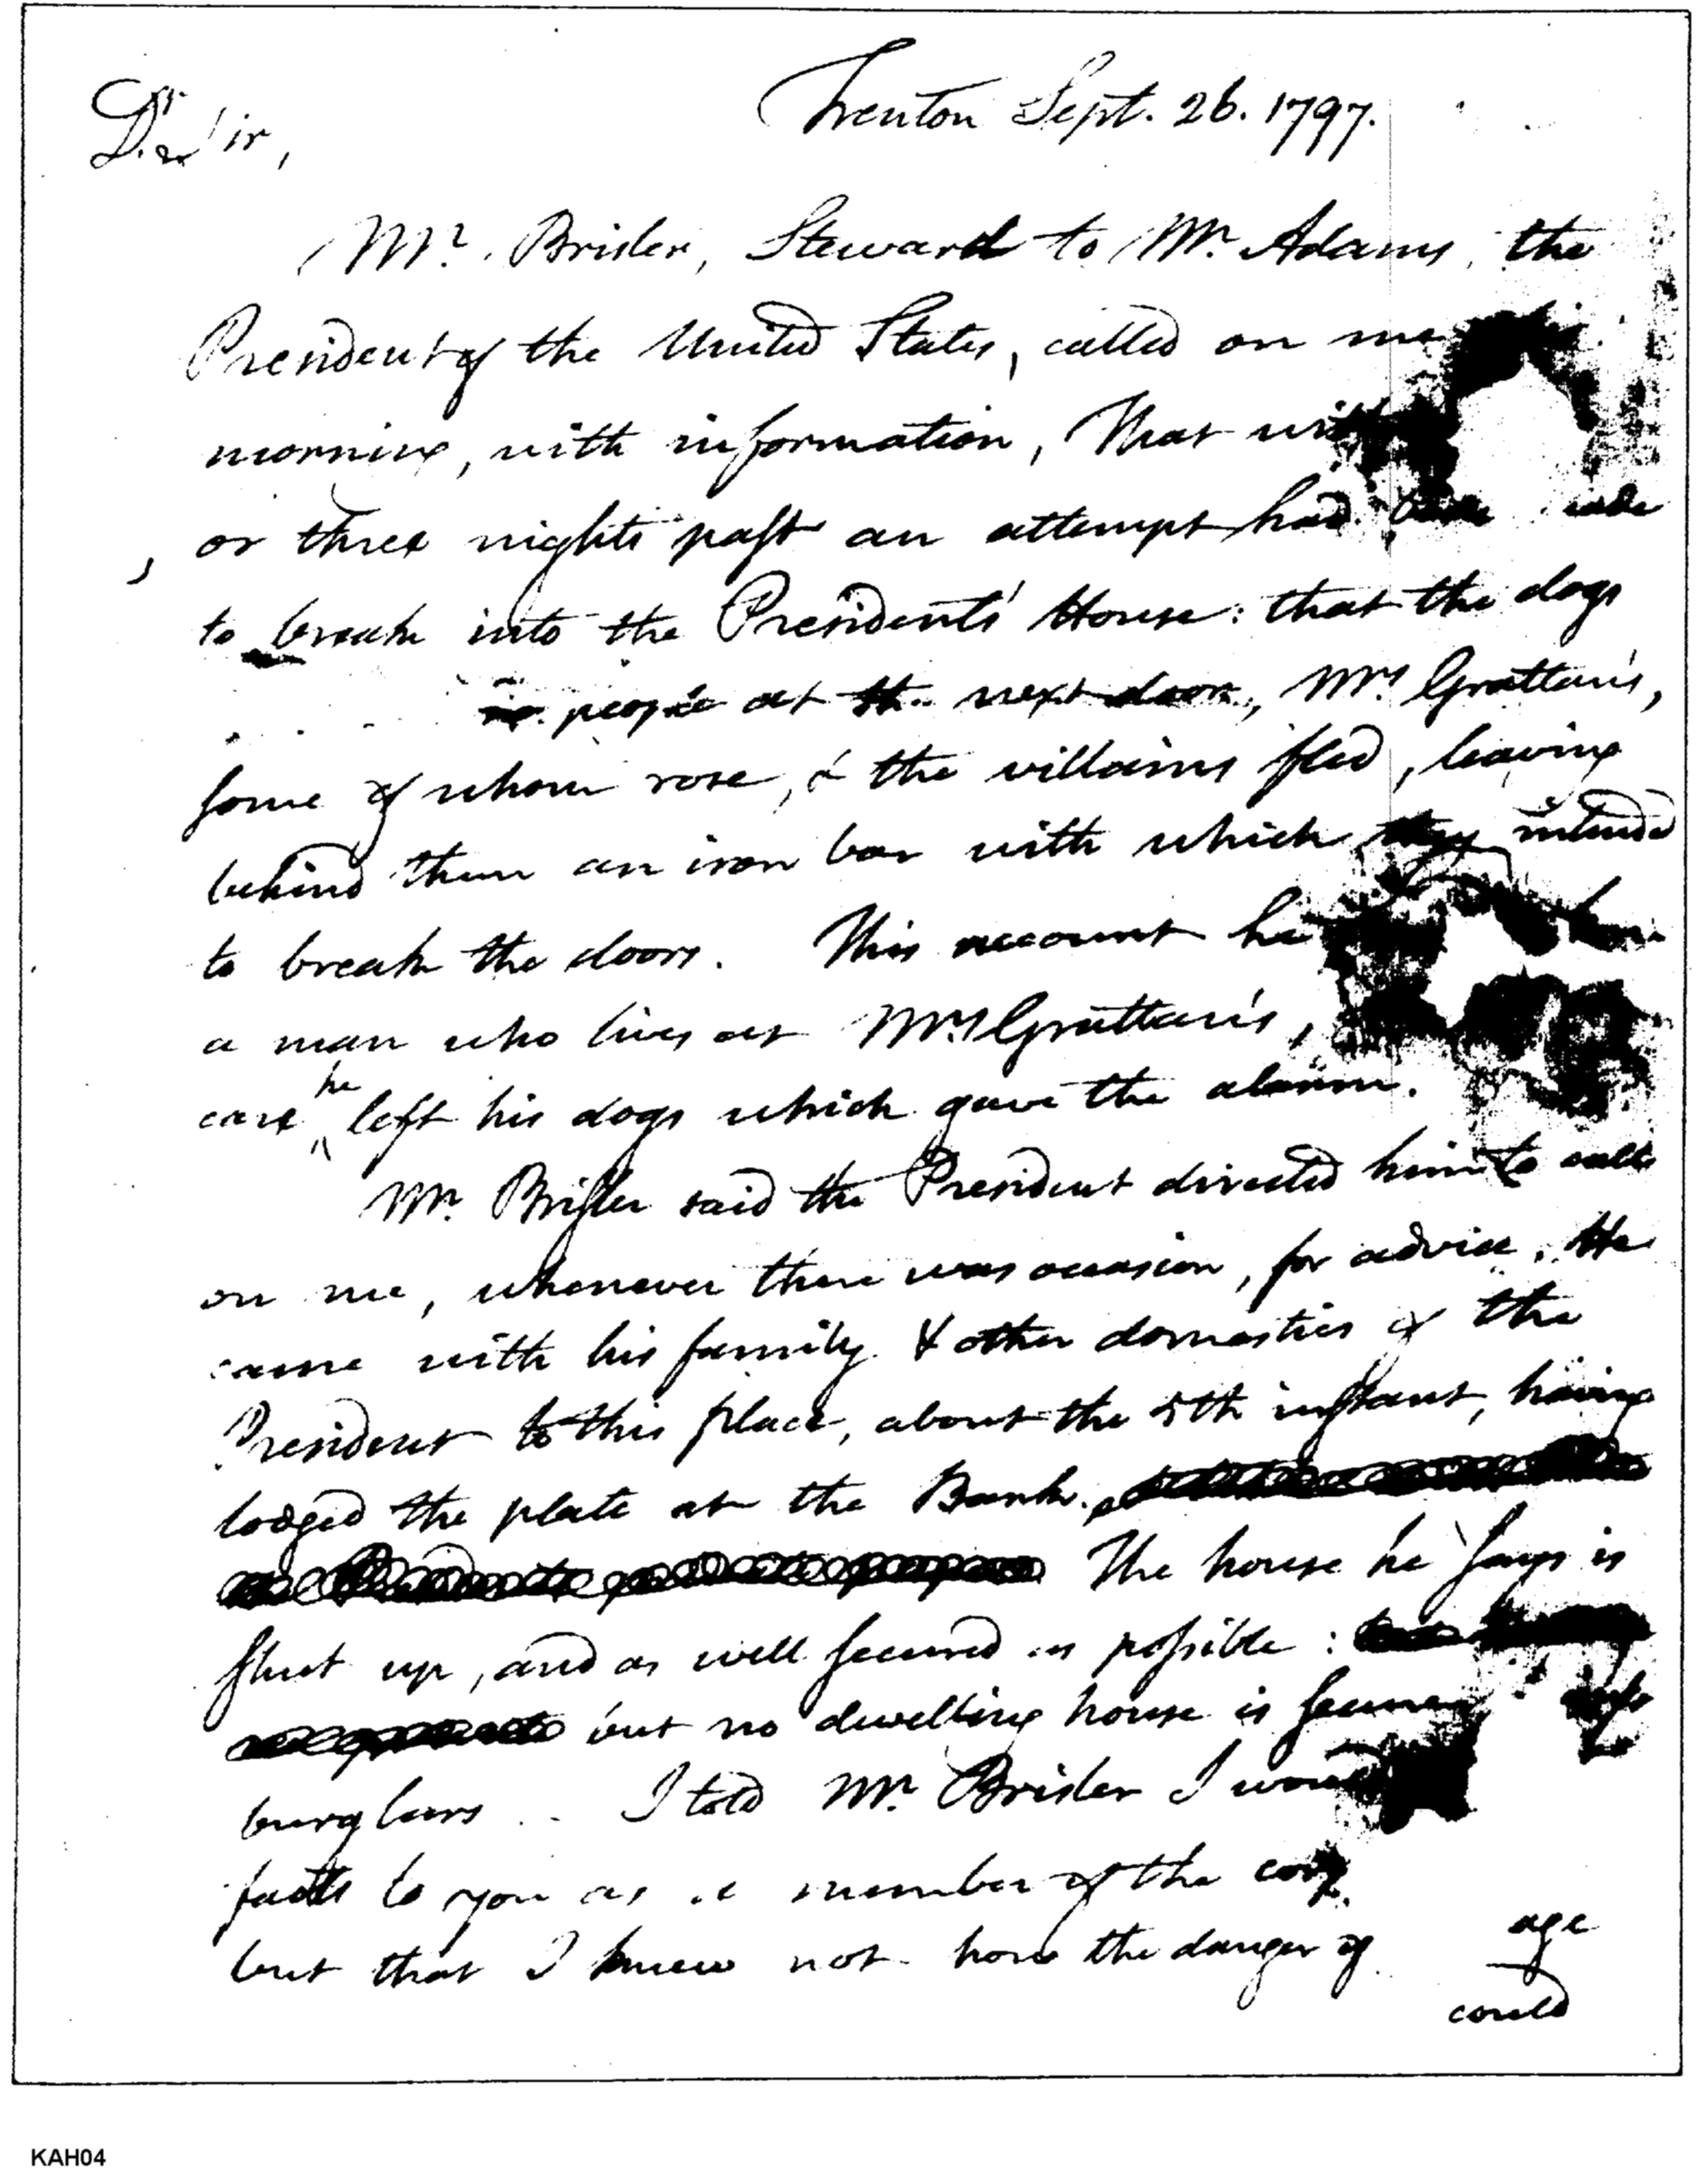 Trenton Sept. 26. 1797.
Dr. Sir,
Mr. Brisler, Steward to Mr. Adams, the
President of the United States, called on me
morning, with information, That
or three nights past an attempt had been made
to break into the Presidents' House: that the dogs
people at the next door, Mrs. Grattan's,
some of whom rose, & the villains fled, leaving
behind them an iron bar with which they intended
to break the doors. This account he
a man who lives at Mrs. Grattan's,
care he left his dogs which gave the alarm.
Mr. Brisler said the President directed him to call
on me, whenever there was occasion, for advice. He
came with his family & other domestics of the
President to this place, about the 5th instant, having
lodged the plate at the Bank.
The house he says is
shut up, and as well secured as possible:
but no dwelling house is
burglars. I told Mr. Brisler I would
facts to you as a member of the
but that I knew not how the danger of
age
could
KAH04